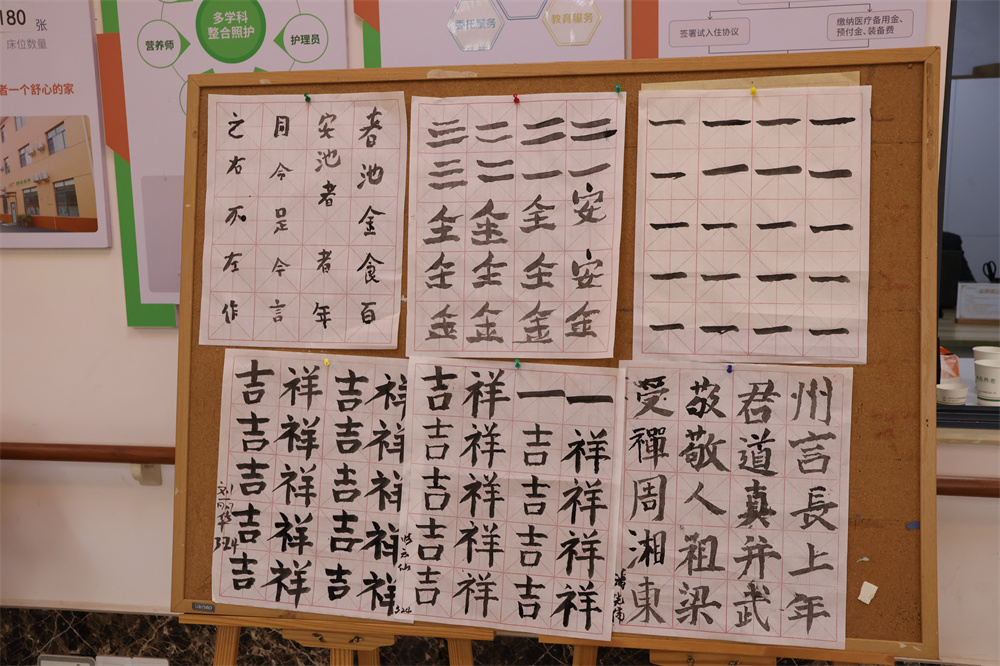 180 张
床位数量
者一个舒心的家
多学科
整合照护
营养师
护理员
委托服务
教育服务
签署试入住协议
缴纳医疗备用金、
预付金、装备费
春池金食百
安池者者年
月令足令言
之右不左作
二一安安金
二一全全金
三二金全金
三三全金金
一一一一一
一一一一一
一一一一一
一一一一一
祥祥祥祥祥
吉吉吉吉吉
祥祥祥祥祥
吉吉吉吉吉
3.24
一祥祥祥祥
一吉吉吉吉
祥祥祥祥祥
吉吉吉吉吉
3.24
州言長上年
君道真并武
敬敬人祖梁
受禪周湘東